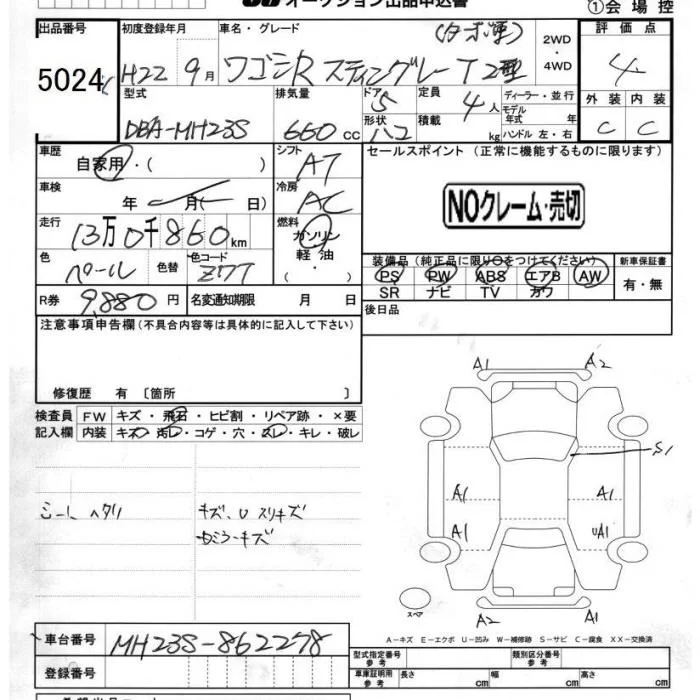 オークション出品申込書
①会場控
出品番号 初度登録年月 車名・グレード 2WD・4WD 評価点
5024 H22 9月 ワゴンR スティングレー T 2型 4
型式 排気量 ドア 定員 ディーラー・並行 外装 内装
DBA-MH23S 660cc 5 4人 モデル年式 年 C C
形状 ハコ 積載 kg ハンドル 左・右
車歴 自家用・( ) シフト AT セールスポイント (正常に機能するものに限ります)
車検 年 月( 日) 冷房 AC NOクレーム・売切
走行 13万0千860km 燃料 ガソリン・軽油・
色 パール 色替 色コード Z7T 装備品 (純正品に限り○をつけてください) 新車保証書
PS PW ABS エアB AW 有・無
SR ナビ TV カワ
R券 9,880円 名変通知期限 月 日 後日品
注意事項申告欄 (不具合内容等は具体的に記入して下さい)
修復歴 有 〔箇所 〕
検査員 FW キズ・飛石・ヒビ割・リペア跡・×要
記入欄 内装 キズ・汚レ・コゲ・穴・スレ・キレ・破レ
シートヘタリ キズ、U スリキズ
ミラーキズ
A1 A2
S1
A1 A1
A1 UA1
スペア
A2 A1
A-キズ E-エクボ U-凹み W-補修跡 S-サビ C-腐食 XX-交換済
車台番号 MH23S-862278
型式指定番号 参考 類別区分番号 参考
登録番号 車庫証明用 参考 長さ cm 幅 cm 高さ cm